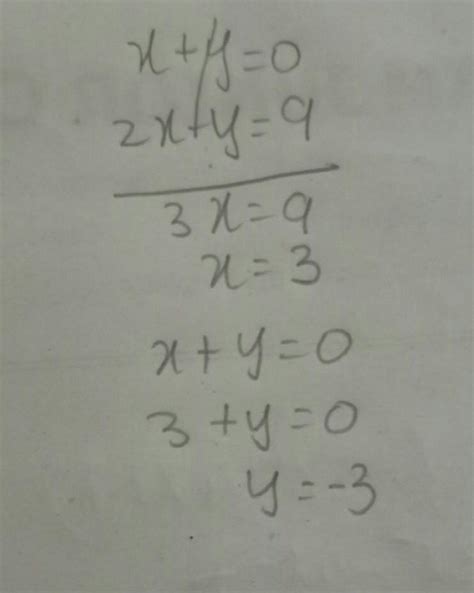 x+y=0
2x+y=9
3x=9
x=3
x+y=0
3+y=0
y=-3